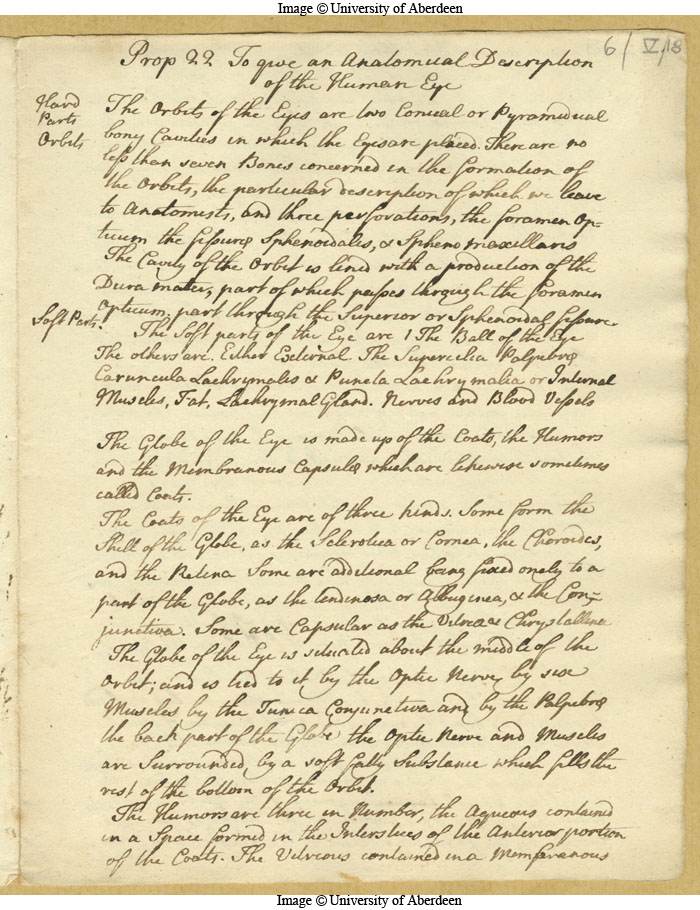 Image © University of Aberdeen
6/ V/18
Prop 22 To give an Anatomical Description
of the Human Eye
Hard
Parts
Orbits
The Orbits of the Eyes are two Conical or Pyramidical
bony Cavities in which the Eyes are placed. There are no
less than seven Bones concerned in the formation of
the Orbits, the particular description of which we leave
to Anatomists, and three perforations, the foramen Op-
ticum the fissuræ Sphenoidalis, & Spheno maxillaris
The Cavity of the Orbit is lined with a production of the
Dura mater, part of which passes through the foramen
Opticum, part through the Superior or Sphenoidal fissure
Soft Parts.
The Soft parts of the Eye are 1 The Ball of the Eye
The others are. Either External. The Supercilia Palpebræ
Caruncula Lachrymales & Puncta Lachrymalia or Internal
Muscles, Fat, Lachrymal Gland. Nerves and Blood Vessels
The Globe of the Eye is made up of the Coats, the Humors
and the Membranous Capsulæ which are likewise sometimes
called Coats.
The Coats of the Eye are of three kinds. Some form the
Shell of the Globe, as the Sclerotica or Cornea, the Choroides,
and the Retina Some are additional being fixed onely to a
part of the Globe, as the tendinosa or Albuginea, & the Con-
junctiva. Some are Capsular as the Vitrea & Chrystalline
The Globe of the Eye is situated about the middle of the
Orbit; and is tied to it by the Optic Nerve by six
Muscles by the Tunica Conjunctiva and by the Palpebræ
the back part of the Globe the Optic Nerve and Muscles
are Surrounded by a soft fatty Substance which fills the
rest of the bottom of the Orbit.
The Humors are three in Number, the Aqueous contained
in a Space formed in the Interstices of the Anterior portion
of the Coats. The Vitreous contained in a Membranous
Image © University of Aberdeen